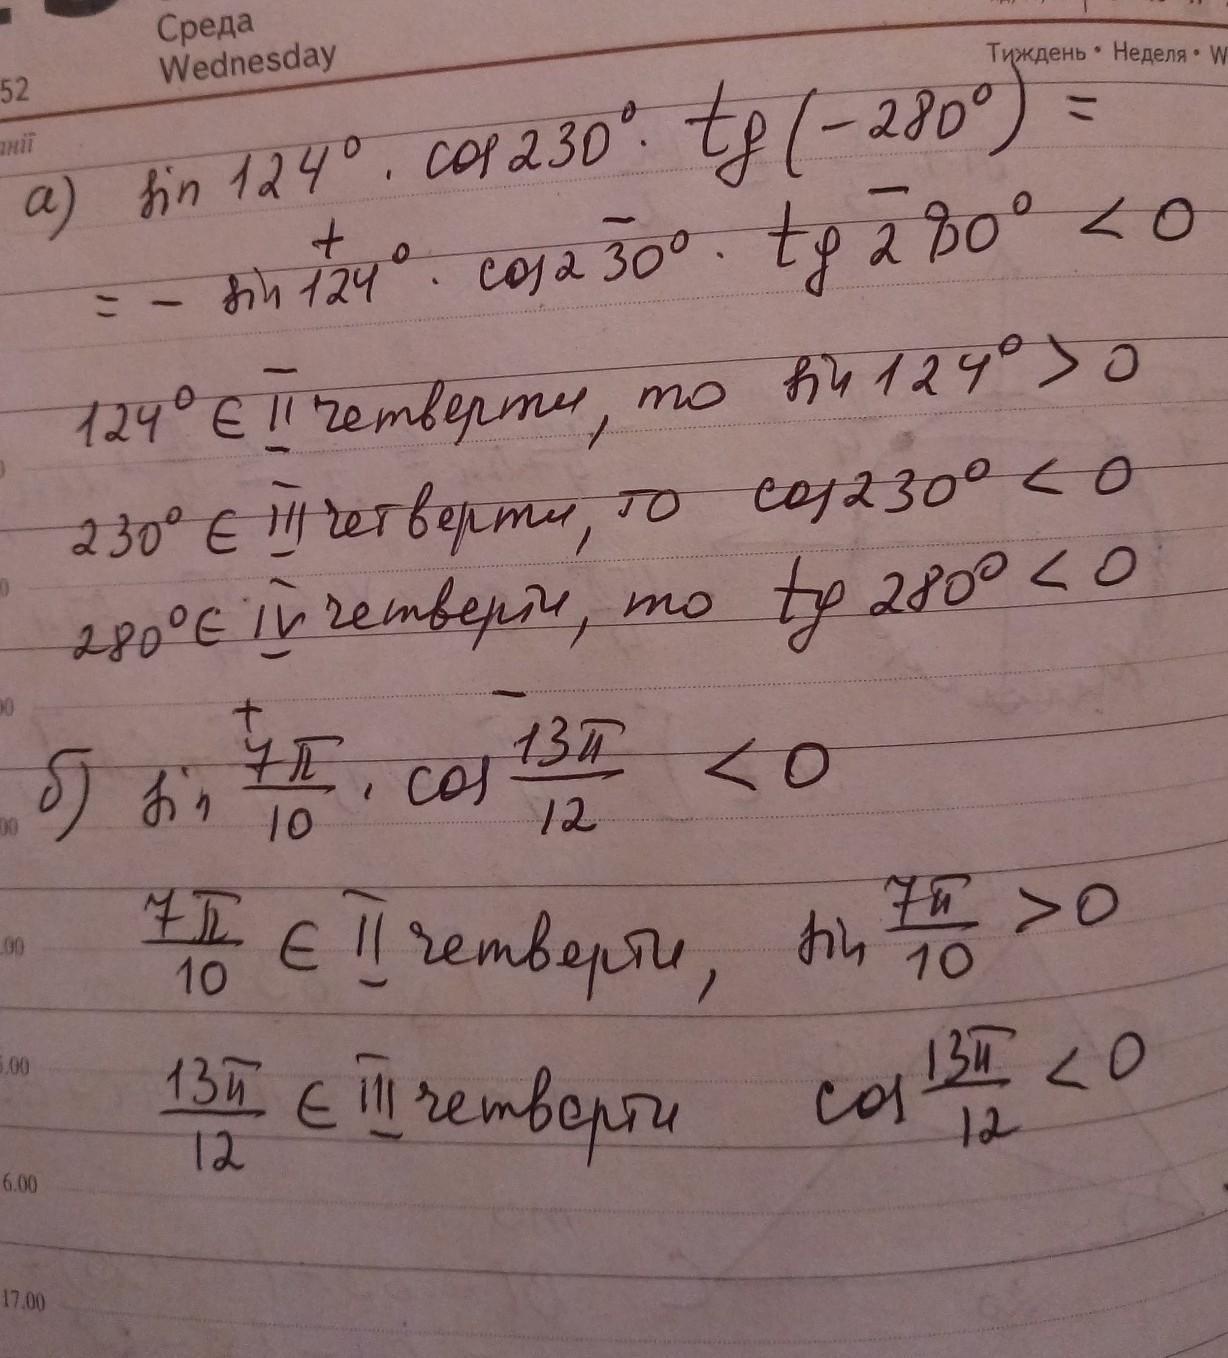 Среда
Wednesday
52
Тиждень • Неделя • W
а) sin 124° · cos 230° · tg (-280°) =
= - sin 124° · cos 230° · tg 280° < 0
+ - -
124° ∈ II четверти, то sin 124° > 0
230° ∈ III четверти, то cos 230° < 0
280° ∈ IV четверти, то tg 280° < 0
+ -
б) sin 7π/10 · cos 13π/12 < 0
7π/10 ∈ II четверти, sin 7π/10 > 0
13π/12 ∈ III четверти cos 13π/12 < 0
6.00
17.00